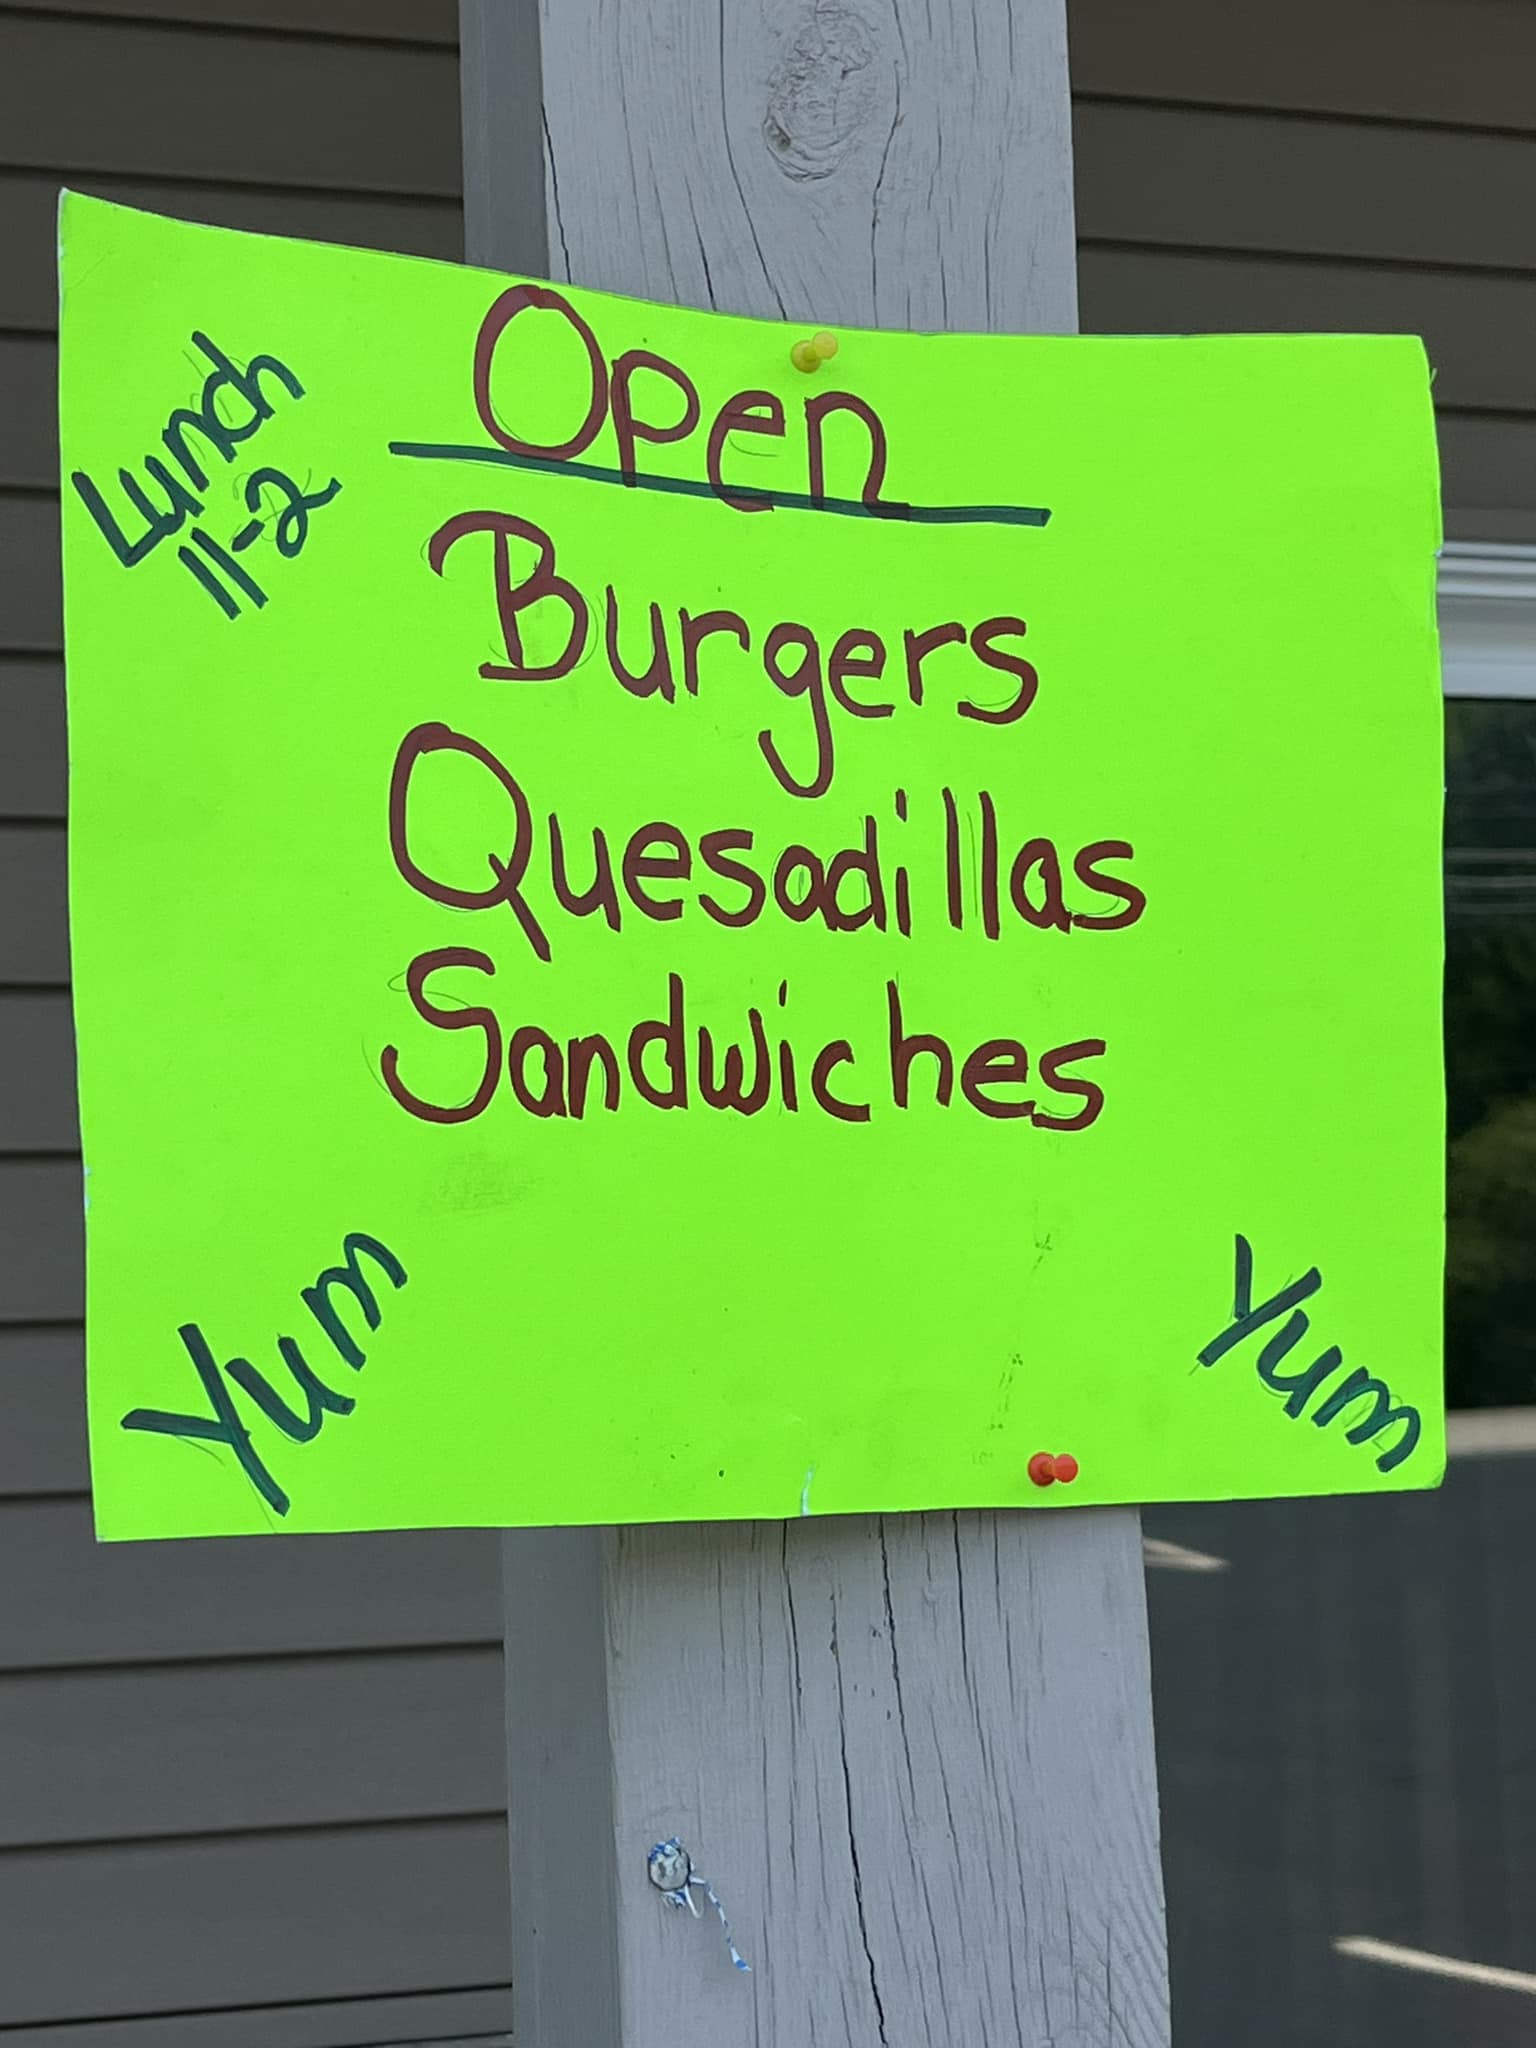 Lunch
11-2
Open
Burgers
Quesadillas
Sandwiches
Yum
Yum